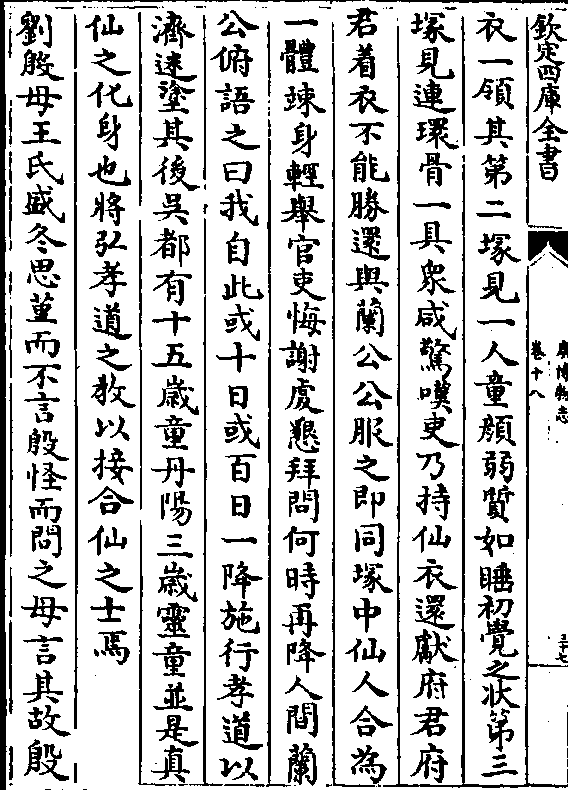 欽定四庫全書
廣博物志
卷十八
三十七
衣一領其第二塚見一人童顔弱質如睡初覺之狀第三
塚見連環骨一具衆咸驚嘆吏乃持仙衣還獻府君府
君着衣不能勝還與蘭公公服之即同塚中仙人合為
一體竦身輕舉官吏悔謝虔懇拜問何時再降人間蘭
公俯語之曰我自此或十日或百日一降施行孝道以
濟速塗其後吳都有十五歲童丹陽三歲靈童並是真
仙之化身也將弘孝道之教以接合仙之士焉
劉殷母王氏盛冬思堇而不言殷怪而問之母言其故殷